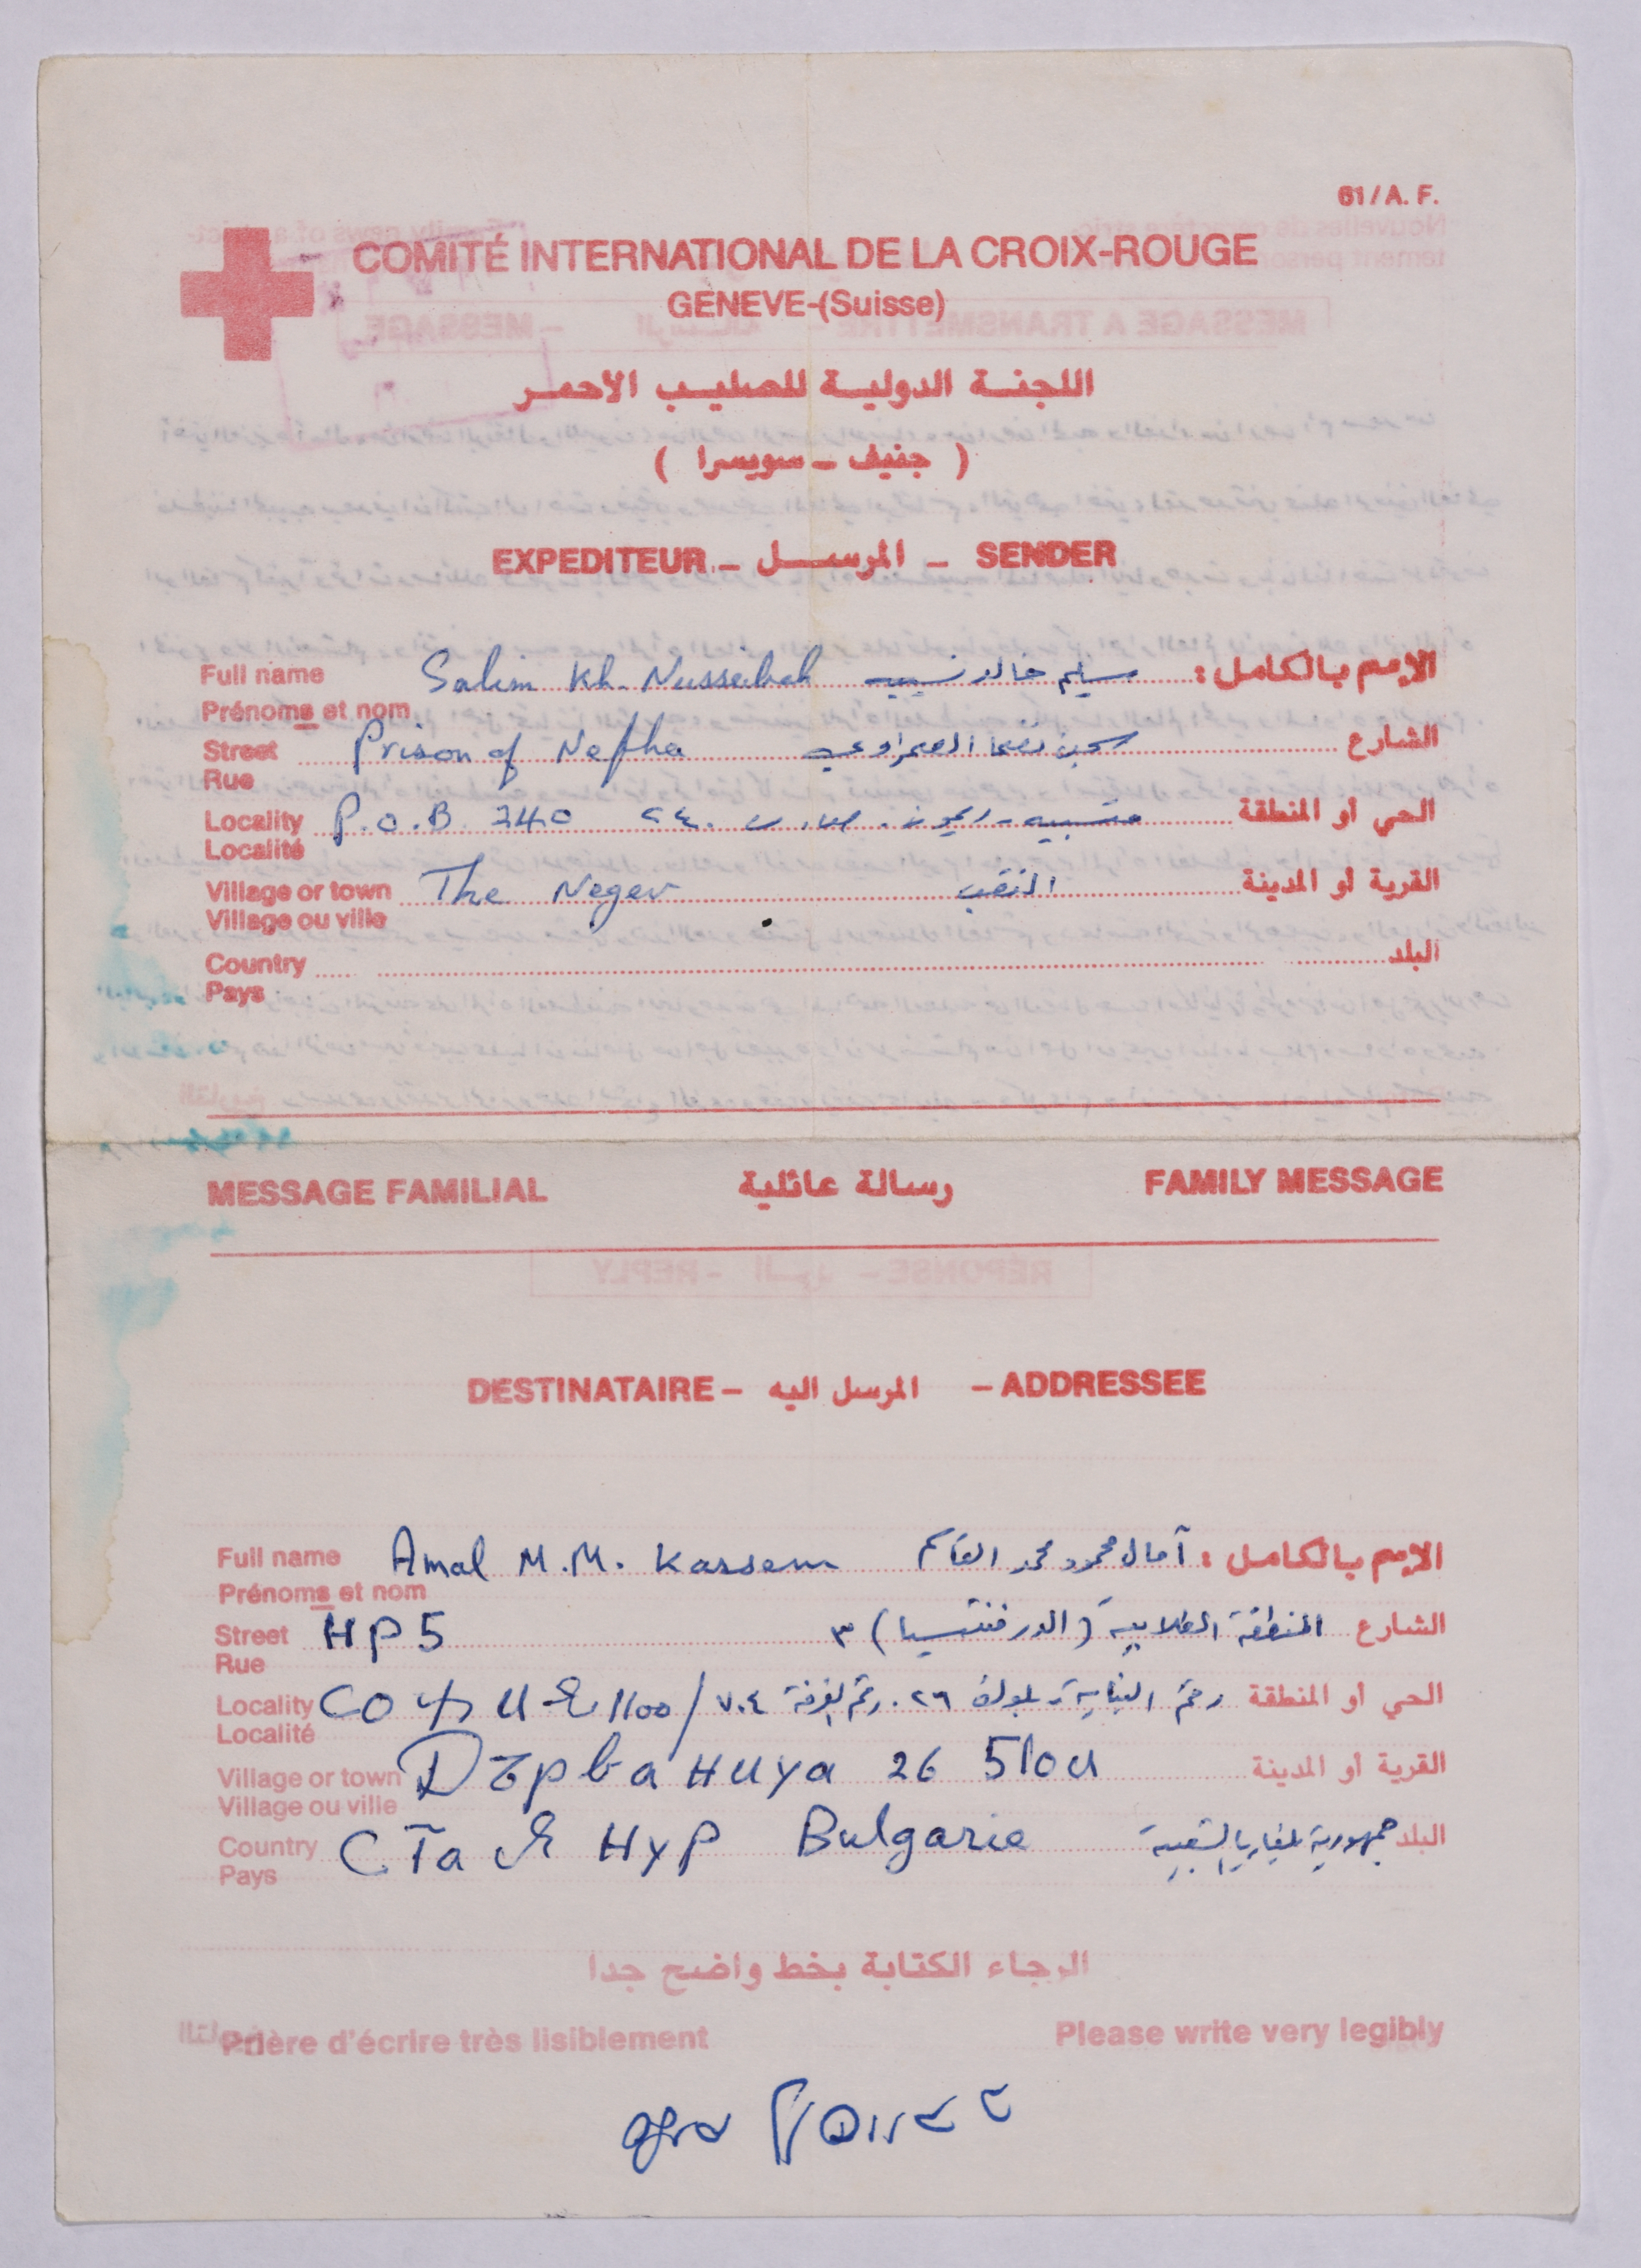 61/A. F.
COMITÉ INTERNATIONAL DE LA CROIX-ROUGE
GENEVE-(Suisse)
اللجنة الدولية للصليب الاحمر
( جنيف - سويسرا )
EXPEDITEUR - المرسل - SENDER
Full name Salim Kh. Nusseibah سليم خالد نسيبه الإسم بالكامل :
Prénoms et nom
Street Prison of Nefha سجن نفحا الصحراوي الشارع
Rue
Locality P.O.B. 240 متسبيه - ريمون . ص . ب ٢٤٠ الحي أو المنطقة
Localité
Village or town The Negev النقب القرية أو المدينة
Village ou ville
Country البلد
Pays
MESSAGE FAMILIAL رسالة عائلية FAMILY MESSAGE
DESTINATAIRE - المرسل اليه - ADDRESSEE
Full name Amal M.M. Kassem آمال محمود محمد القاسم الإسم بالكامل :
Prénoms et nom
Street HP5 المنطقة الطلابية ( ) ٣ الشارع
Rue
Locality 1100/ ٧٠٤ رقم الغرفة ٢٦ بلوك رقم البناية الحي أو المنطقة
Localité
Village or town 26 5лои القرية أو المدينة
Village ou ville
Country Bulgarie جمهورية بلغاريا الشعبية البلد
Pays
الرجاء الكتابة بخط واضح جدا
Prière d'écrire très lisiblement Please write very legibly